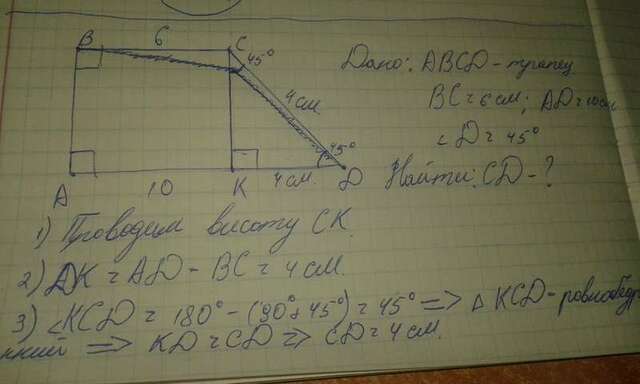 B 6 C
45°
4 см.
45°
A 10 K 4 см. D
Дано: ABCD - трапец
BC = 6 см; AD = 10 см
∠D = 45°
Найти: CD - ?
1) Проводим высоту CK.
2) DK = AD - BC = 4 см.
3) ∠KCD = 180° - (90° + 45°) = 45° => △ KCD - равнобедр
нный => KD = CD => CD = 4 см.